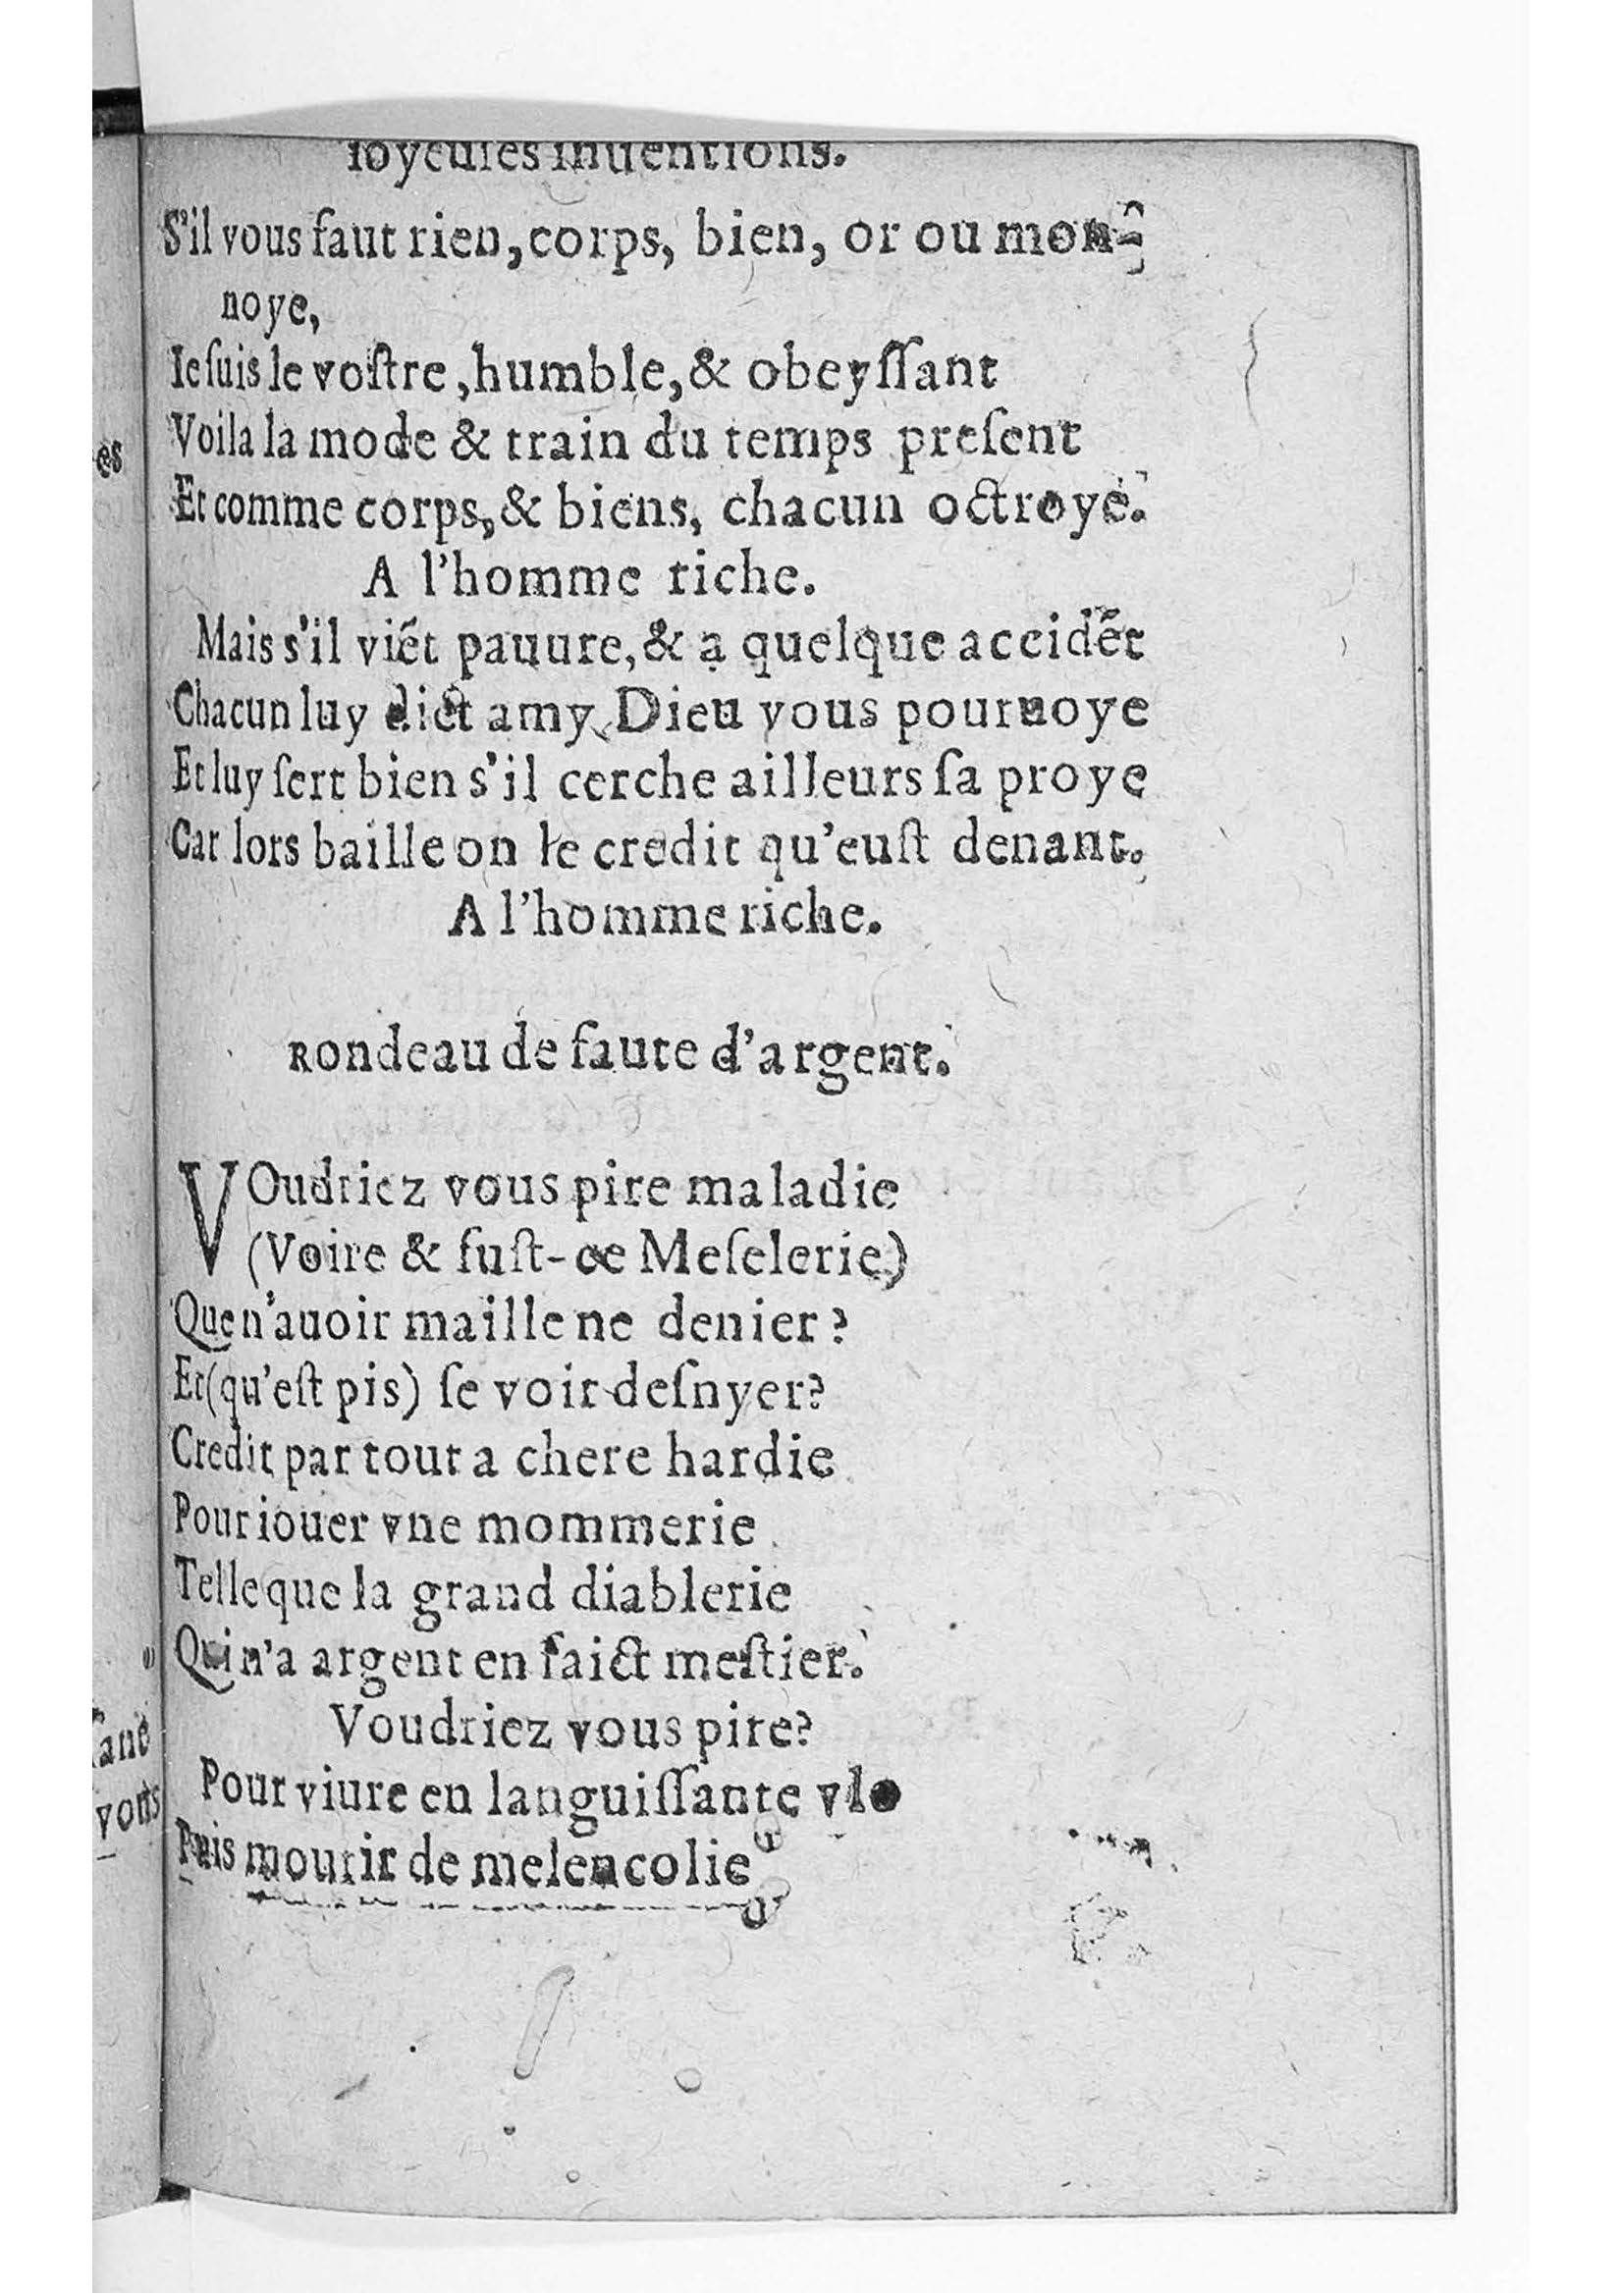 Ioyeuſes inuentions.
S'il vous faut rien, corps, bien, or ou mon-
noye,
Ie ſuis le voſtre, humble, & obeyſſant
Voila la mode & train du temps preſent
Et comme corps, & biens, chacun octroye.
A l'homme riche.
Mais s'il viẽt pauure, & a quelque accidẽt
Chacun luy dict amy Dieu vous pouruoye
Et luy ſert bien s'il cerche ailleurs ſa proye
Car lors baille on le credit qu'euſt denant.
A l'homme riche.
RONDEAU de faute d'argent.
VOudriez vous pire maladie
(Voire & fuſt-ce Meſelerie)
Que n'auoir maille ne denier?
Et (qu'eſt pis) ſe voir deſnyer?
Credit par tout a chere hardie
Pour iouer vne mommerie
Telle que la grand diablerie
Qui n'a argent en faict meſtier.
Voudriez vous pire?
Pour viure en languiſſante
Puis mourir de melencolie